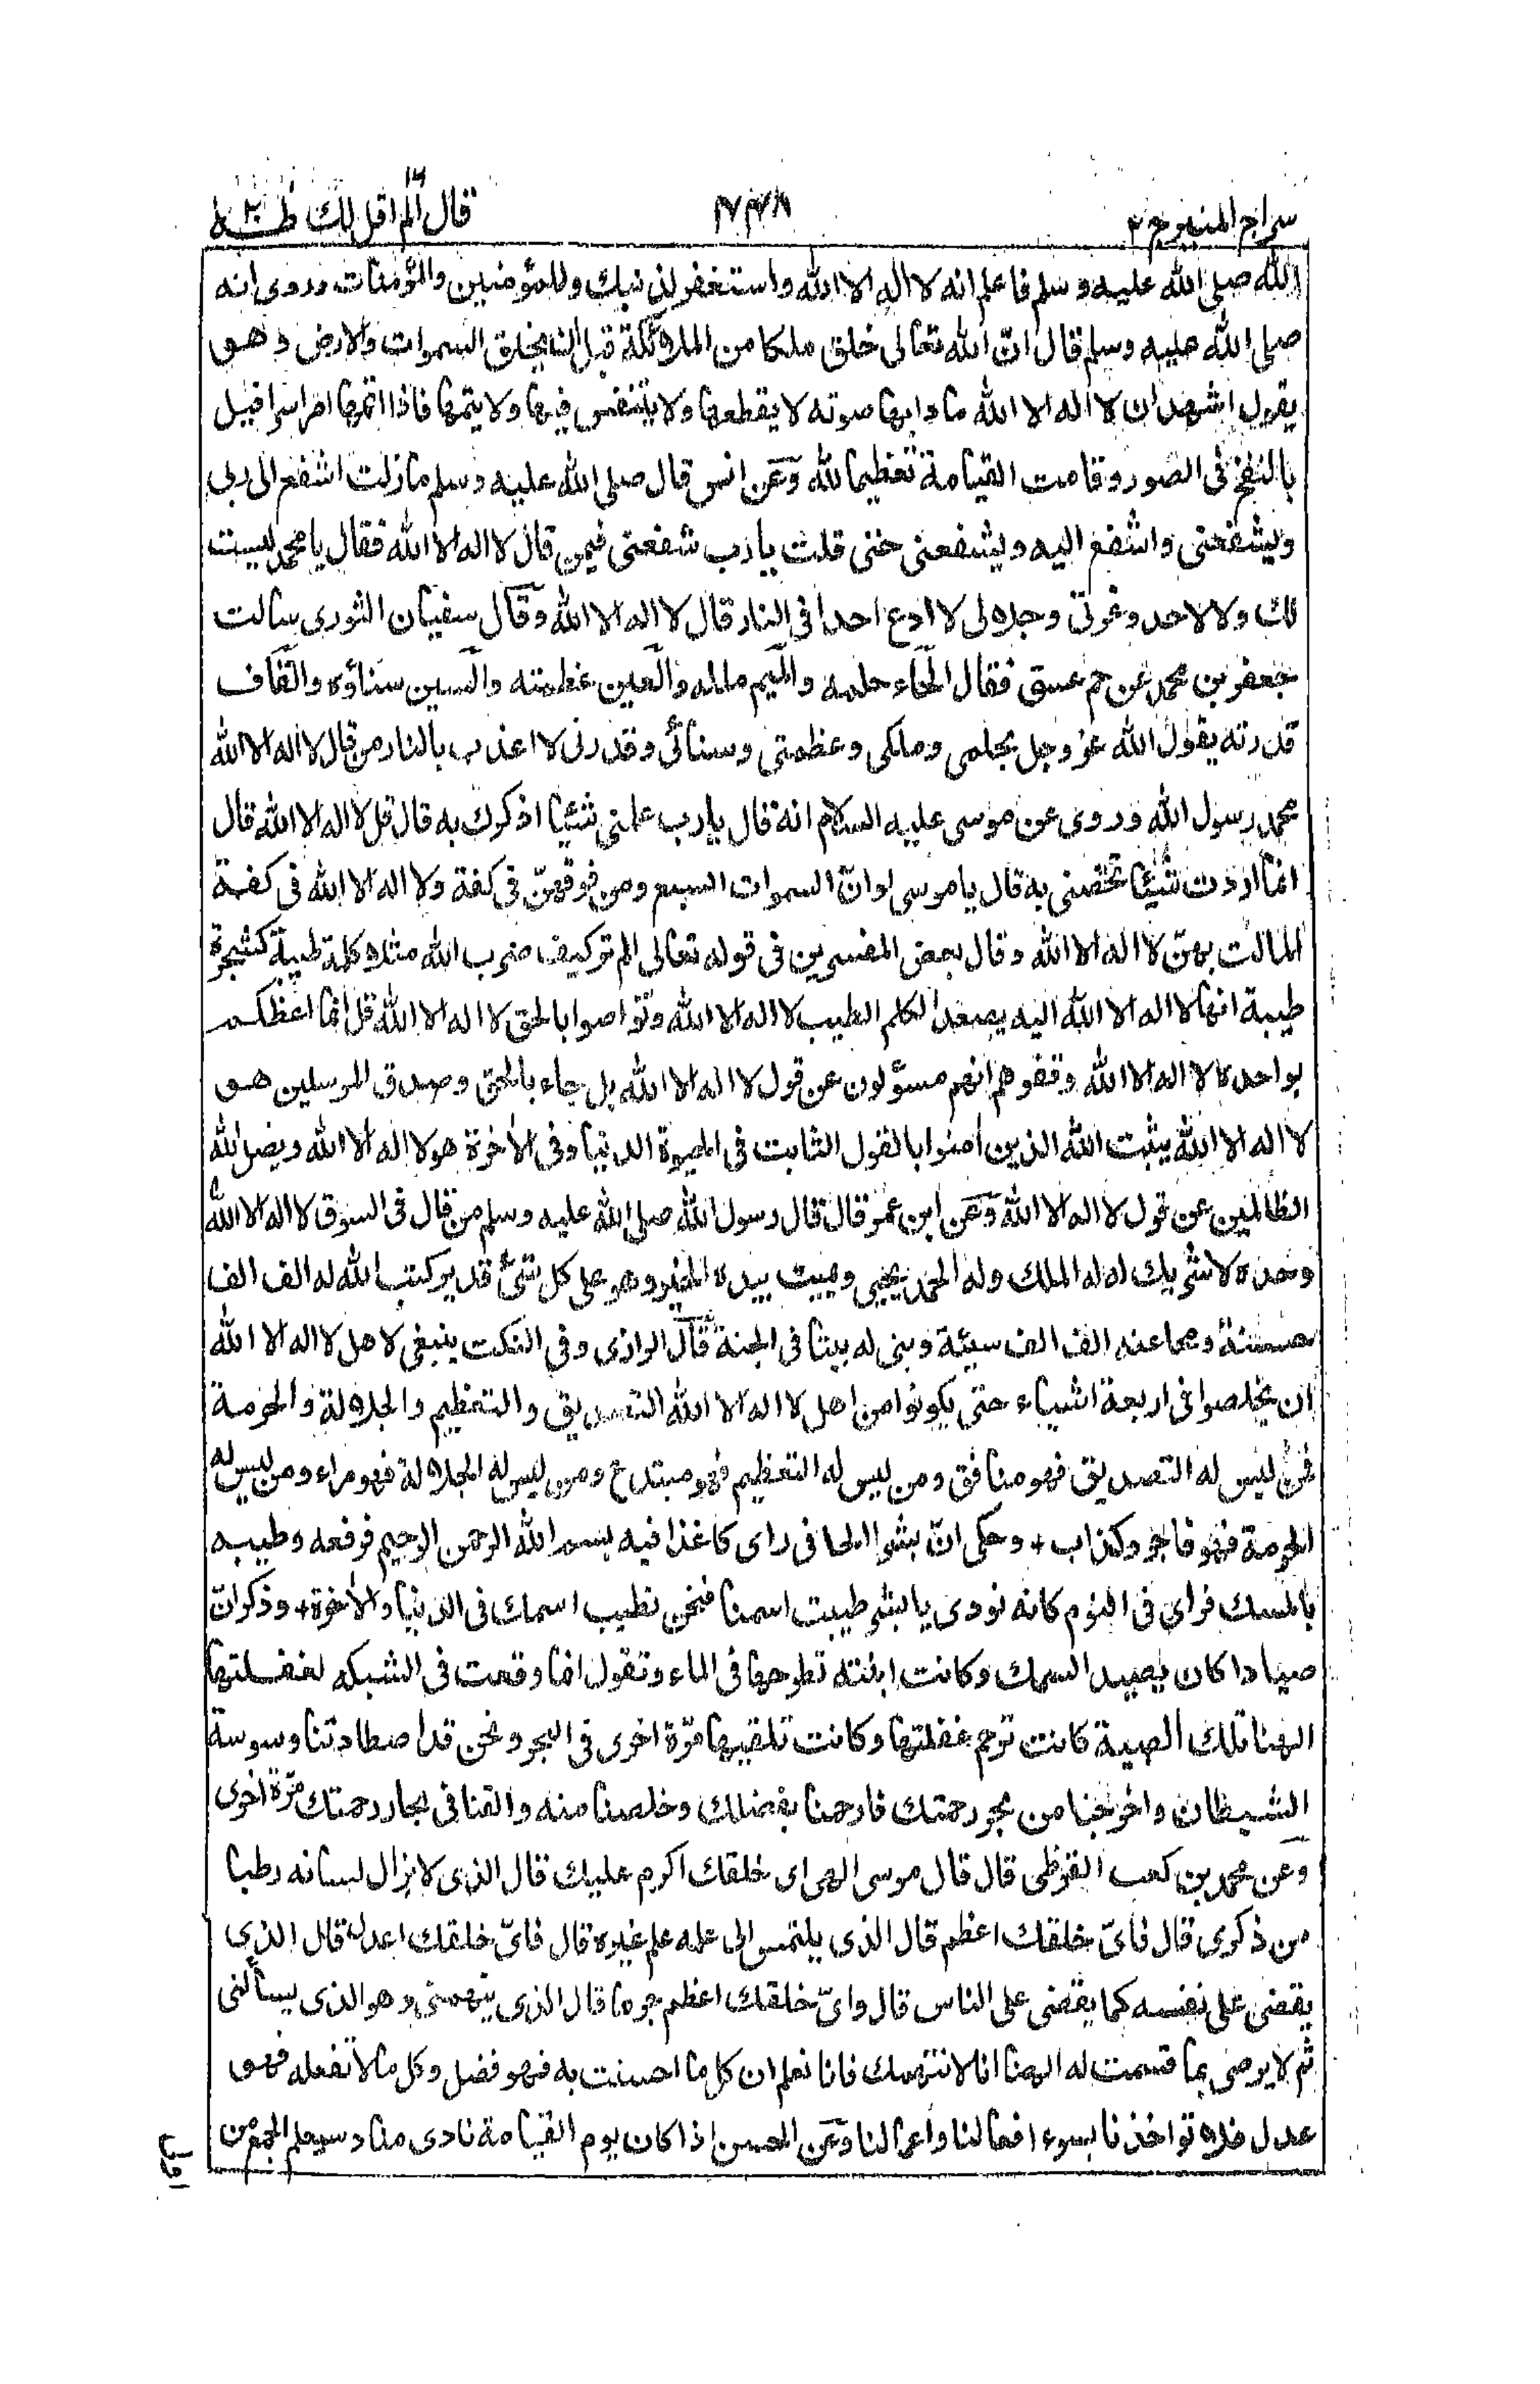 سراج المنير ج ٢
٤٤٨
قال الم اقل لك ١٦ طه ٢٠
الله صلى الله عليه وسلم فاعلم انه لا اله الا الله واستغفر لذنبك وللمؤمنين والمؤمنات وروى انه
صلى الله عليه وسلم قال انّ الله تعالى خلق ملكا من الملائكة قبل ان يخلق السموات والارض وهو
يقول اشهد ان لا اله الا الله مادا بها صوته لا يقطعها ولا يتنفس فيها ولا يتمها فاذا اتمها امر اسرافيل
بالنفخ فى الصور وقامت القيامة تعظيما لله وعن انس قال صلى الله عليه وسلم مازلت اشفع الى ربى
ويشفعنى واشفع اليه ويشفعنى حتى قلت يا رب شفعنى فيمن قال لا اله الا الله فقال يا محمد ليست
لك ولا لاحد وعزتى وجلالى لا ادع احدا فى النار قال لا اله الا الله وقال سفيان الثورى سألت
جعفر بن محمد عن حم عسق فقال الحاء حلمه والميم ملكه والعين عظمته والسين سناؤه والقاف
قدرته يقول الله عز وجل بحلمى وملكى وعظمتى وسنائى وقدرتى لا اعذب بالنار من قال لا اله الا الله
محمد رسول الله وروى عن موسى عليه السلام انه قال يا رب علمنى شيئا اذكرك به قال قل لا اله الا الله قال
انما اردت شيئا تخصنى به قال يا موسى لو انّ السموات السبع ومن فوقهنّ فى كفة ولا اله الا الله فى كفة
لمالت بهنّ لا اله الا الله وقال بعض المفسرين فى قوله تعالى الم تر كيف ضرب الله مثلا كلمة طيبة كشجرة
طيبة انها لا اله الا الله اليه يصعد الكلم الطيب لا اله الا الله وتواصوا بالحق لا اله الا الله قل انما اعظكم
بواحدة لا اله الا الله وقفوهم انهم مسؤلون عن قول لا اله الا الله بل جاء بالحق وصدق المرسلين هو
لا اله الا الله يثبت الله الذين امنوا بالقول الثابت فى الحيوة الدنيا وفى الأخرة هو لا اله الا الله ويضل الله
الظالمين عن قول لا اله الا الله وعن ابن عمر قال قال رسول الله صلى الله عليه وسلم من قال فى السوق لا اله الا الله
وحده لا شريك له له الملك وله الحمد يحيى ويميت بيده الخير وهو على كل شئ قدير كتب الله له الف الف
حسنة ومحا عنه الف الف سيئة وبنى له بيتا فى الجنة قال الرازى وفى النكت ينبغى لاهل لا اله الا الله
ان يخلصوا فى اربعة اشياء حتى يكونوا من اهل لا اله الا الله التصديق والتعظيم والجلالة والحرمة
فمن ليس له التصديق فهو منافق ومن ليس له التعظيم فهو مبتدع ومن ليس له الجلالة فهو مراء ومن ليس له
الحرمة فهو فاجر وكذاب + وحكى انّ بشرا الحافى راى كاغذا فيه بسم الله الرحمن الرحيم فرفعه وطيبه
بالمسك فراى فى النوم كانه نودى يا بشر طيبت اسمنا فنحن نطيب اسمك فى الدنيا والأخرة + وذكر انّ
صيادا كان يصيد السمك وكانت ابنته تطرحها فى الماء وتقول انما وقعت فى الشبكه لغفلتها
الهنا تلك الصبية كانت ترحم غفلتها وكانت تلقيها مرّة اخرى فى البحر ونحن قد اصطادتنا وسوسة
الشيطان واخرجنا من بحر رحمتك فارحمنا بفضلك وخلصنا منه والقنا فى بحار رحمتك مرّة اخرى
وعن محمد بن كعب القرظى قال قال موسى الهى اى خلقك اكرم عليك قال الذى لا يزال لسانه رطبا
من ذكرى قال فاىّ خلقك اعظم قال الذى يلتمس الى علمه علم غيره قال فاىّ خلقك اعدل قال الذى
يقضى على نفسه كما يقضى على الناس قال واىّ خلقك اعظم جرما قال الذى يتهمنى وهو الذى يسألنى
ثم لا يرضى بما قسمت له الهنا انا لا نتهمك فانا نعلم ان كل ما احسنت به فهو فضل وكل ما لا تفعله فهو
عدل فلا تواخذنا بسوء افعالنا واعمالنا وعن الحسن اذا كان يوم القيامة نادى مناد سيعلم الجمع من